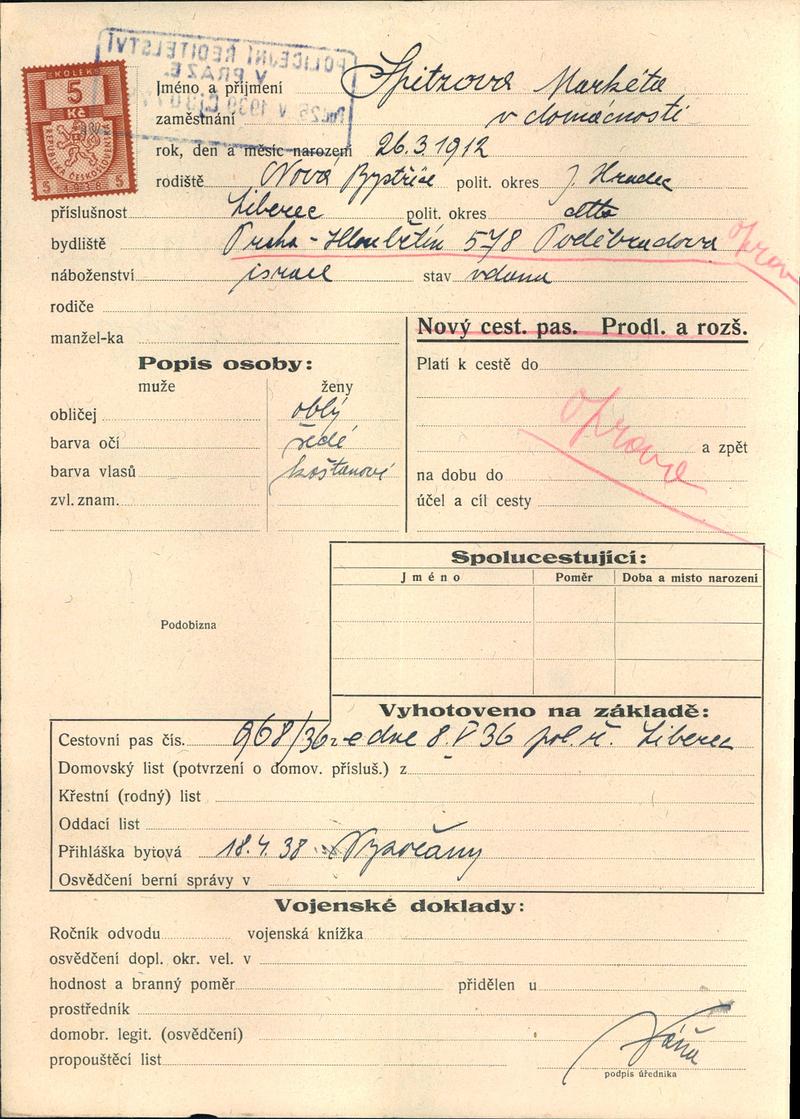 KOLEK
5
Kč
REPUBLIKA ČESKOSLOVENSKÁ
5 1938 5
POLICEJNÍ ŘEDITELSTVÍ
V PRAZE
V 1939
Jméno a příjmení Spitzova Markéta
zaměstnání v domácnosti
rok, den a měsíc narození 26.3.1912
rodiště Nova Bystřice polit. okres J. Hradec
příslušnost Liberec polit. okres detto
bydliště Praha - Hloubětín 578 Poděbradova oprav
náboženství israel stav vdana
rodiče
manžel-ka
Nový cest. pas. Prodl. a rozš.
Popis osoby:
muže ženy
obličej oblý
barva očí šedé
barva vlasů kaštanové
zvl. znam.
Platí k cestě do
oprava
a zpět
na dobu do
účel a cíl cesty
Spolucestující:
Jméno Poměr Doba a místo narození
Podobizna
Vyhotoveno na základě:
Cestovní pas čís. 968/36 ze dne 8.V 36 pol. ř. Liberec
Domovský list (potvrzení o domov. přísluš.) z
Křestní (rodný) list
Oddací list
Přihláška bytová 18.4.38 Vysočany
Osvědčení berní správy v
Vojenské doklady:
Ročník odvodu vojenská knížka
osvědčení dopl. okr. vel. v
hodnost a branný poměr přidělen u
prostředník
domobr. legit. (osvědčení)
propouštěcí list
podpis úředníka